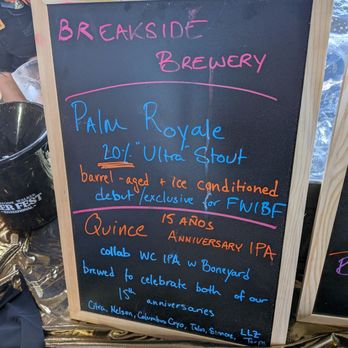 BREAKSIDE
BREWERY
PALM ROYALE
20% "Ultra" Stout
barrel-aged + ice conditioned
debut/exclusive for FWIBF
Quince 15 AÑOS
ANNIVERSARY IPA
collab WC IPA w Boneyard
brewed to celebrate both of our
15th anniversaries
Citra, Nelson, Columbus Cryo, Talus, Simcoe, LLZ